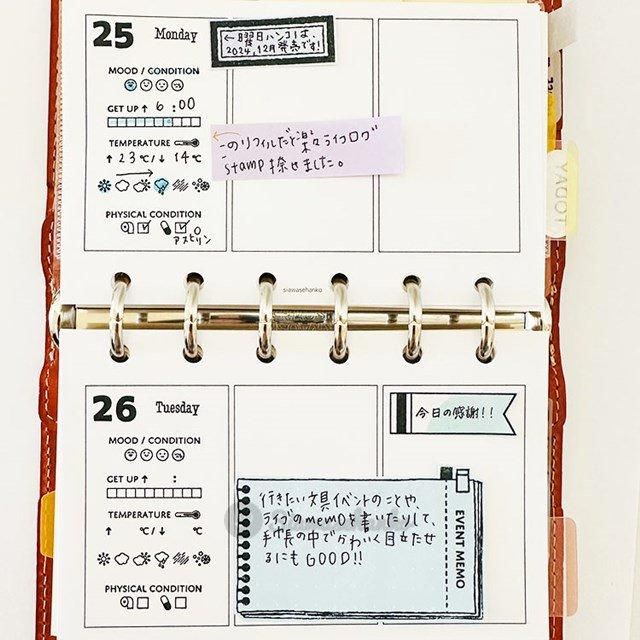 25 Monday
←曜日ハンコは、
2024.12月発売です!
MOOD / CONDITION
GET UP ↑ 6:00
TEMPERATURE
↑ 23 ℃/ ↓ 14℃
PHYSICAL CONDITION
アスピリン
このリフィルだと楽々ライフログ
stamp 捺せました。
TODAY
siawasehanko
26 Tuesday
MOOD / CONDITION
GET UP ↑ :
TEMPERATURE
↑ ℃/ ↓ ℃
PHYSICAL CONDITION
今日の感謝!!
行きたい文具イベントのことや、
ライブのmemoを書いたりして、
手帳の中でかわいく目立たせ
るにもGOOD!!
EVENT MEMO